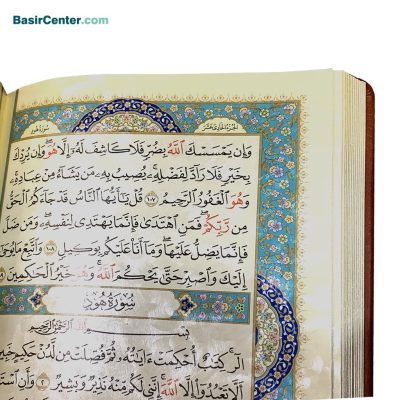 BasirCenter.com
الجزء الحادي عشر سورة هود
وَإِن يَمْسَسْكَ ٱللَّهُ بِضُرٍّ فَلَا كَاشِفَ لَهُۥٓ إِلَّا هُوَ ۖ وَإِن يُرِدْكَ
بِخَيْرٍ فَلَا رَآدَّ لِفَضْلِهِۦ ۚ يُصِيبُ بِهِۦ مَن يَشَآءُ مِنْ عِبَادِهِۦ ۚ
وَهُوَ ٱلْغَفُورُ ٱلرَّحِيمُ ١٠٧ قُلْ يَٰٓأَيُّهَا ٱلنَّاسُ قَدْ جَآءَكُمُ ٱلْحَقُّ
مِن رَّبِّكُمْ ۖ فَمَنِ ٱهْتَدَىٰ فَإِنَّمَا يَهْتَدِى لِنَفْسِهِۦ ۖ وَمَن ضَلَّ
فَإِنَّمَا يَضِلُّ عَلَيْهَا ۖ وَمَآ أَنَا۠ عَلَيْكُم بِوَكِيلٍ ١٠٨ وَٱتَّبِعْ مَا يُوحَىٰٓ
إِلَيْكَ وَٱصْبِرْ حَتَّىٰ يَحْكُمَ ٱللَّهُ ۚ وَهُوَ خَيْرُ ٱلْحَٰكِمِينَ ١٠٩
سُورَةُ هُودٍ
بِسْمِ ٱللَّهِ ٱلرَّحْمَٰنِ ٱلرَّحِيمِ
الٓر ۚ كِتَٰبٌ أُحْكِمَتْ ءَايَٰتُهُۥ ثُمَّ فُصِّلَتْ مِن لَّدُنْ حَكِيمٍ
أَلَّا تَعْبُدُوٓا۟ إِلَّا ٱللَّهَ ۚ إِنَّنِى لَكُم مِّنْهُ نَذِيرٌ وَبَشِيرٌ ٢ وَأَنِ